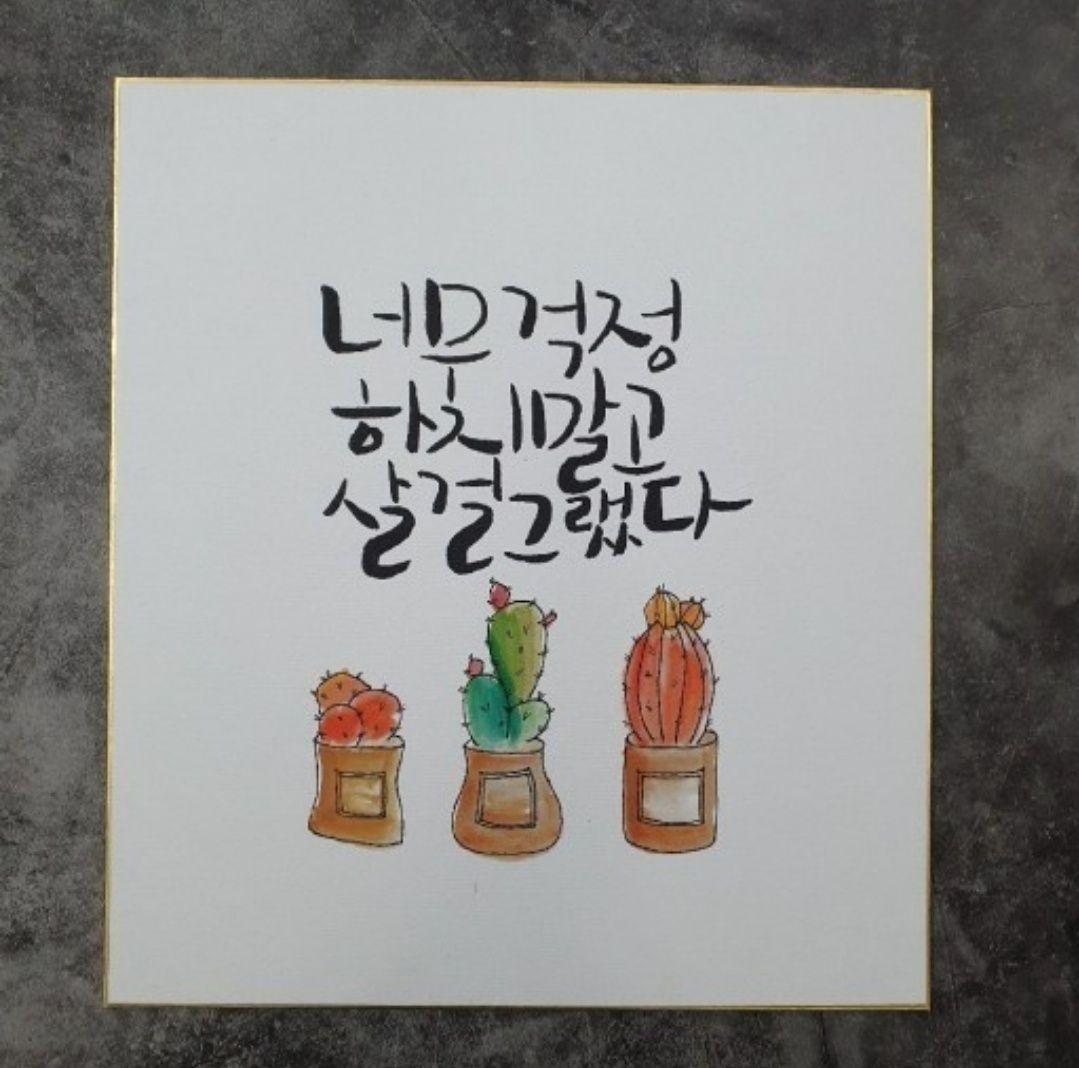 너무 걱정
하지 말고
살걸 그랬다